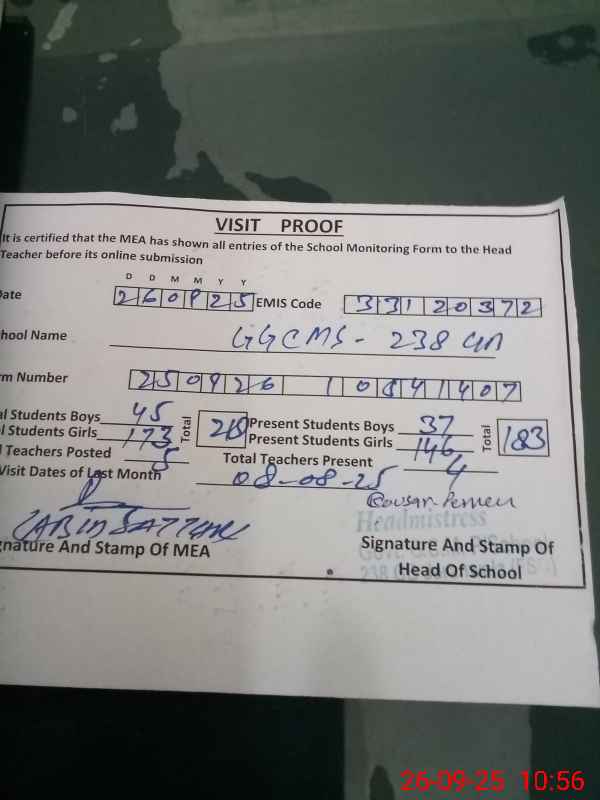 VISIT PROOF
It is certified that the MEA has shown all entries of the School Monitoring Form to the Head
Teacher before its online submission
D D M M Y Y
ate 260925 EMIS Code 33120372
hool Name GGCMS - 238 GB
rm Number 250926 10841407
al Students Boys 45 Total 218 Present Students Boys 37 Total 183
l Students Girls 173 Present Students Girls 146
l Teachers Posted 5 Total Teachers Present 4
Visit Dates of Last Month 08-08-25
Headmistress
gnature And Stamp Of MEA Signature And Stamp Of
Head Of School
26-09-25 10:56